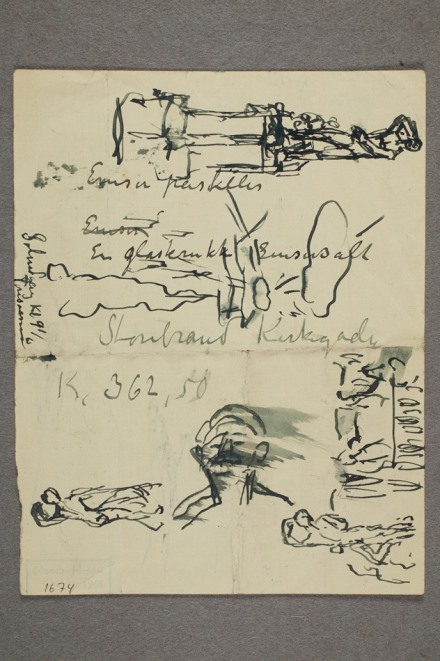 Emser pastiller
Emser
En glaskrukke Emsersalt
Storebrand Kirkegade
K, 362,50
Kl 9½
1674